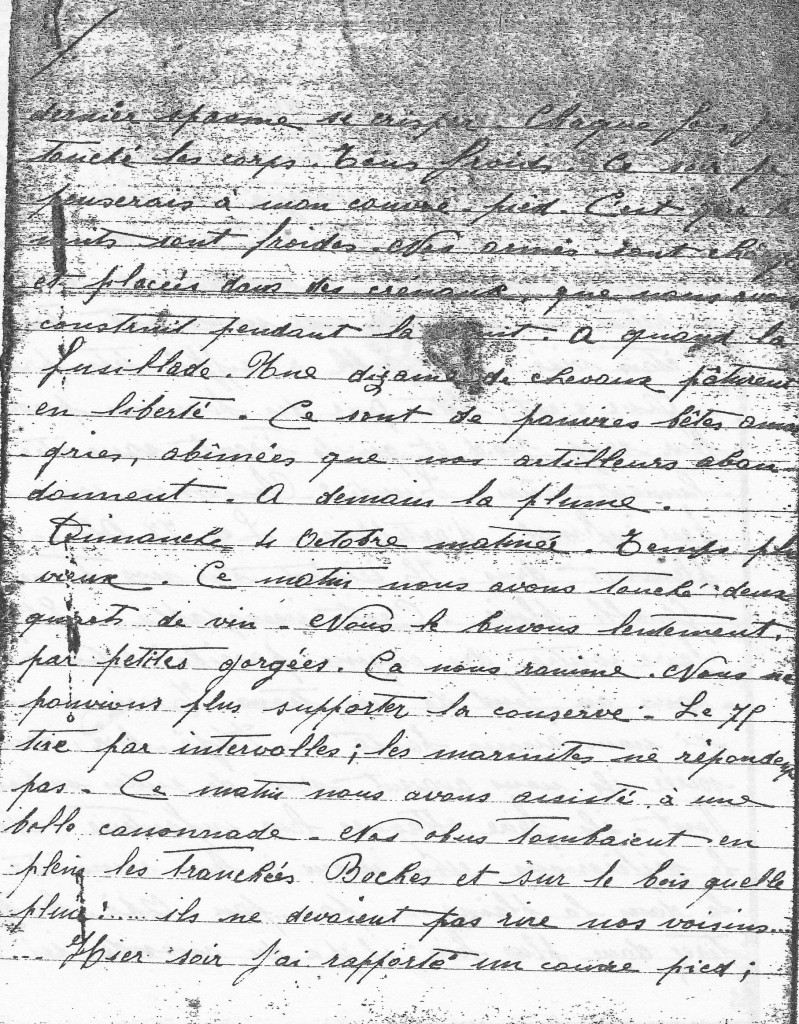 dernier spasme se crisper. Chaque fois j'ai
touché les corps. Tous froids. Ce soir je
penserais à mon couvre-pied. C'est que les
nuits sont froides. Nos armes sont
et placées dans des crénaux, que nous avons
construit pendant la nuit. A quand la
fusillade. Une dizaine de chevaux pâturent
en liberté. Ce sont de pauvres bêtes amai
gries, abîmées que nos artilleurs aban-
donnent. A demain la plume.
Dimanche 4 Octobre matinée. Temps plu
vieux. Ce matin nous avons touché deux
quarts de vin - Nous le buvons lentement,
par petites gorgées. Ca nous ranime. Nous ne
pouvions plus supporter la conserve - Le 75
tire par intervalles; les marmites ne répondent
pas - Ce matin nous avons assisté à une
belle canonnade - Nos obus tombaient en
plein les tranchées Boches et sur le bois quelle
pluie!.... ils ne devaient pas rire nos voisins...
... Hier soir j'ai rapporté un couvre pied;